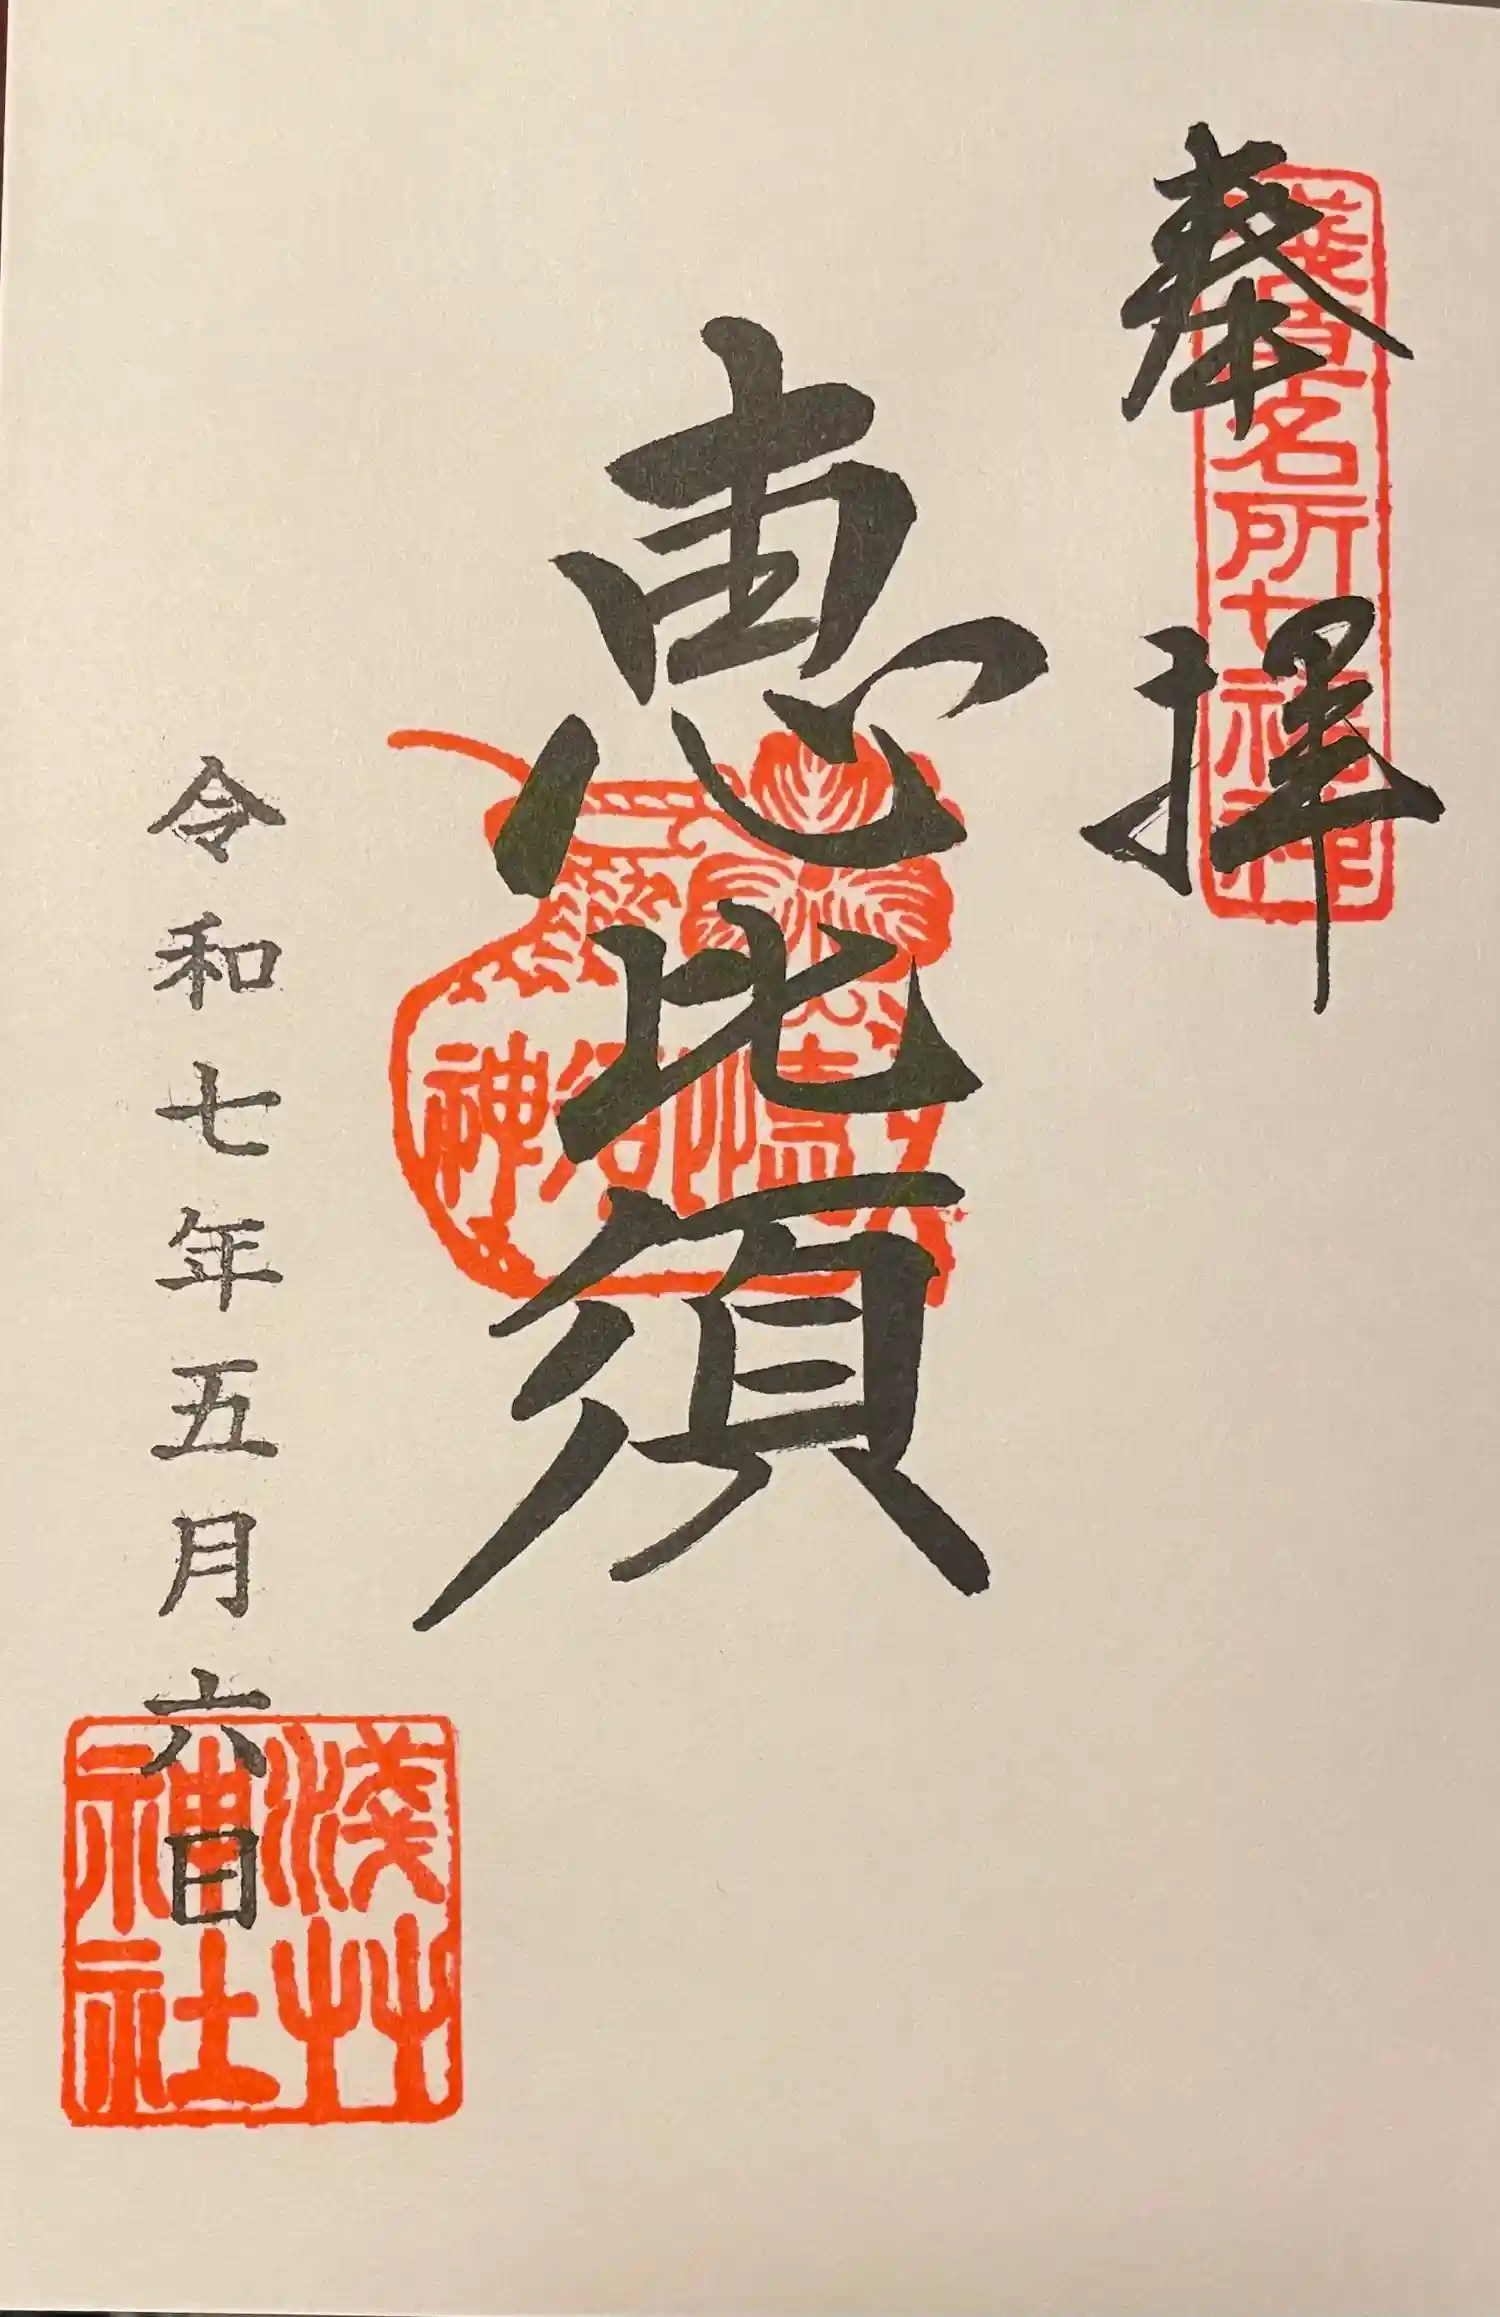 奉拝
浅草名所七福神
恵比須
恵比須神
令和七年五月六日
淺草神社